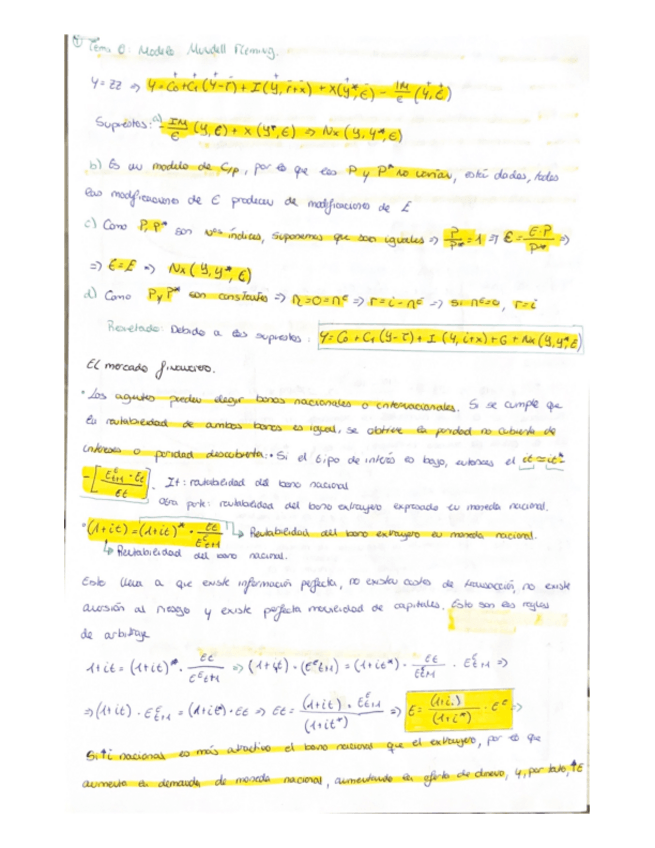 ① Tema 6: Modelo Mundell Fleming.
Y = ZZ ⇒ Y = C₀ + C₁ (Y - T) + I (Y, r + x) + X (Y*, Є) - IM/Є (Y, Є)
Supuestos: a) - IM/Є (Y, Є) + X (Y*, Є) ⇒ NX (Y, Y*, Є)
b) Es un modelo de C/P, por es que los P y P* no varían, están dados, todas
las modificaciones de Є producen de modificaciones de E
c) Como P, P* son Nºs índices, suponemos que son iguales ⇒ P/P* = 1 ⇒ Є = E·P/P* ⇒
⇒ Є = E ⇒ NX (Y, Y*, E)
d) Como P y P* son constantes ⇒ π = 0 = πᵉ ⇒ r = i - πᵉ ⇒ si πᵉ = 0, r = i
Resultado: Debido a los supuestos: Y = C₀ + C₁ (Y - T) + I (Y, i + x) + G + NX (Y, Y*, E)
El mercado financiero.
· Los agentes pueden elegir bonos nacionales o internacionales. Si se cumple que
la rentabilidad de ambos bonos es igual, se obtiene la paridad no cubierta de
intereses o paridad descubierta: · Si el tipo de interés es bajo, entonces el it ≃ it*
- [Eᵉt+1 - Et / Et]. It: rentabilidad del bono nacional
Otra parte: rentabilidad del bono extranjero expresado en moneda nacional.
· (1 + it) = (1 + it)* · Et/Eᵉt+1 ↳ Rentabilidad del bono extranjero en moneda nacional.
↳ Rentabilidad del bono nacional.
Esto lleva a que existe información perfecta, no existen costes de transacción, no existe
aversión al riesgo y existe perfecta movilidad de capitales. Esto son las reglas
de arbitraje
1 + it = (1 + it)* · Et/Eᵉt+1 ⇒ (1 + it) · (Eᵉt+1) = (1 + it*) · Et/Eᵉt+1 · Eᵉt+1 ⇒
⇒ (1 + it) · Eᵉt+1 = (1 + it*) · Et ⇒ Et = (1 + it) · Eᵉt+1/(1 + it*) ⇒ E = (1 + i)/(1 + i*) · Eᵉ ⇒
Si ↑i nacional es más atractivo el bono nacional que el extranjero, por es que
aumenta la demanda de moneda nacional, aumentando la oferta de dinero, y, por tanto, ↑E